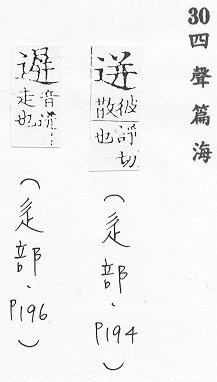 30 四聲篇海
逬
彼諍切
散也
(辵部.P194)
音
走也
(辵部.P196)